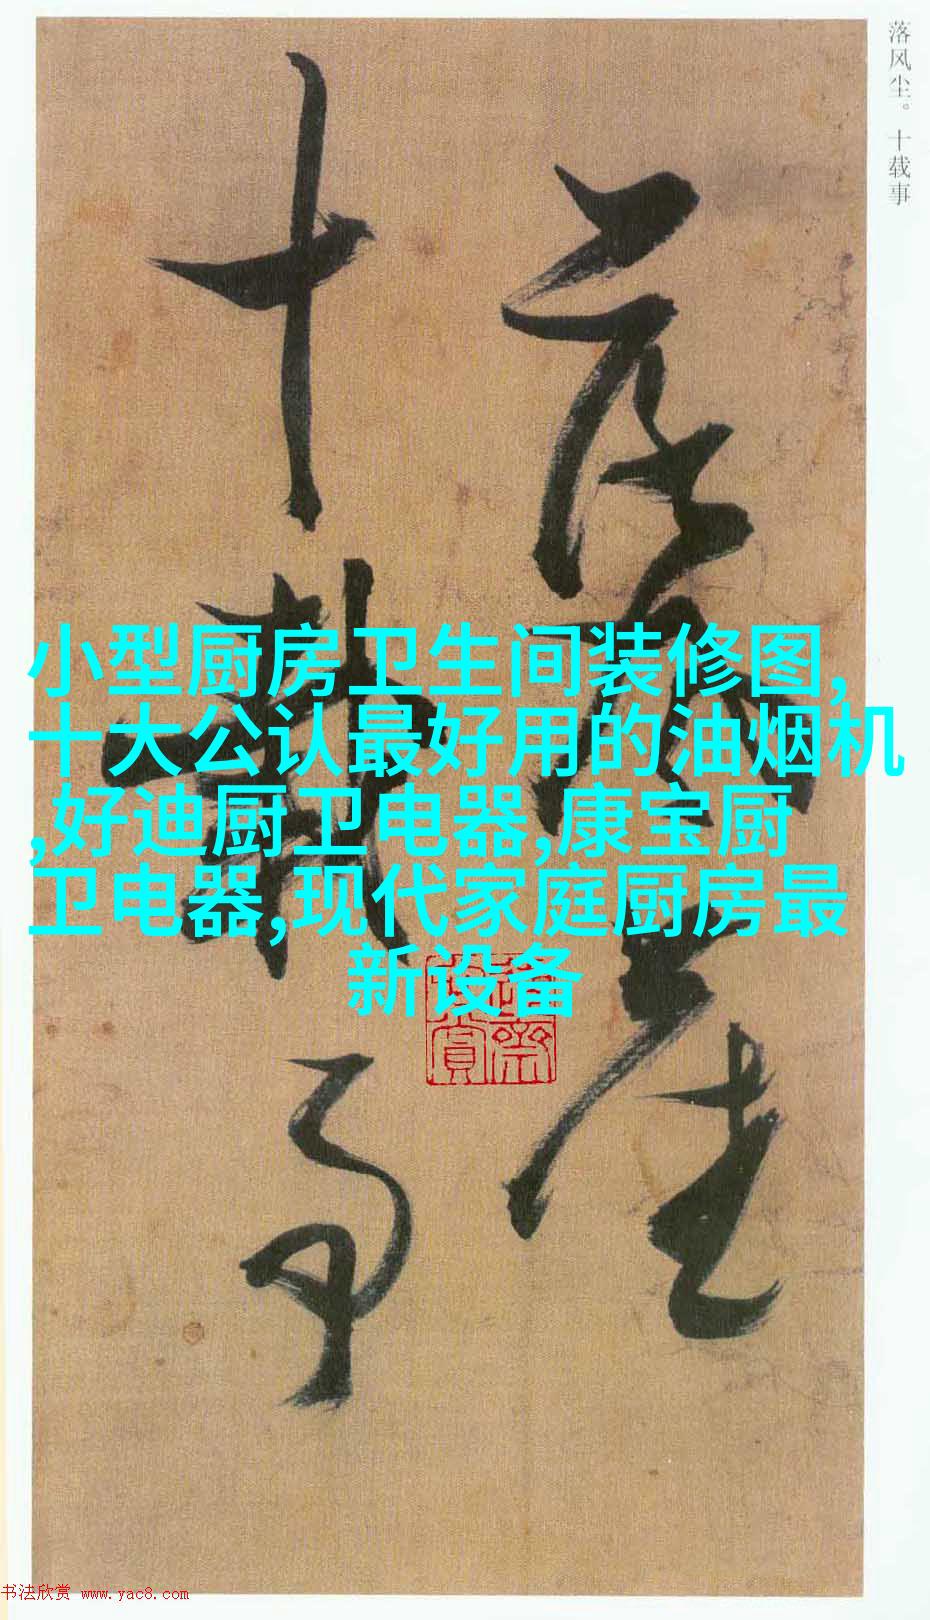 落风尘。十载事
落风尘
十载事
小型厨房卫生间装修图,
十大公认最好用的油烟机
,好迪厨卫电器,康宝厨
卫电器,现代家庭厨房最
新设备
书法欣赏 www.yac8.com